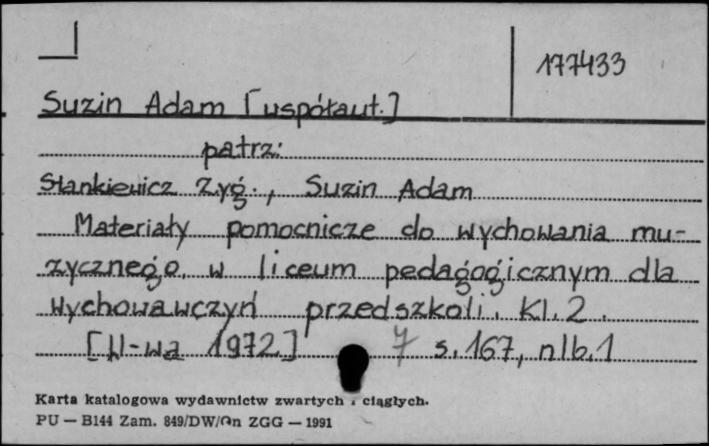 177433
Suzin Adam [uspółaut.]
patrz:
Stankiewicz Zyg., Suzin Adam
Materiały pomocnicze do wychowania mu-
zycznego w liceum pedagogicznym dla
wychowawczyń przedszkoli. Kl. 2.
[W-wa 1972] 7 s. 167, nlb. 1
Karta katalogowa wydawnictw zwartych i ciągłych.
PU — B144 Zam. 849/DW/On ZGG — 1991